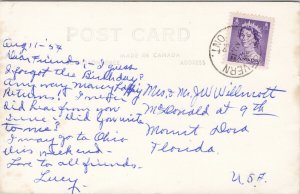 POST CARD
MADE IN CANADA
ADDRESS
Aug 11-54
Dear Friends:- I guess
I forgot the Birthday?
Anyway many Happy
Returns!
Did hear from
June - Did you write
to me?
I may go to Ohio
this week end.
Love to all friends.
Lucy.
Mrs. + Mr. J W Wellmott
McDonald at 9th
Mount Dora
Florida
U.S.A.
VERN
ONT.